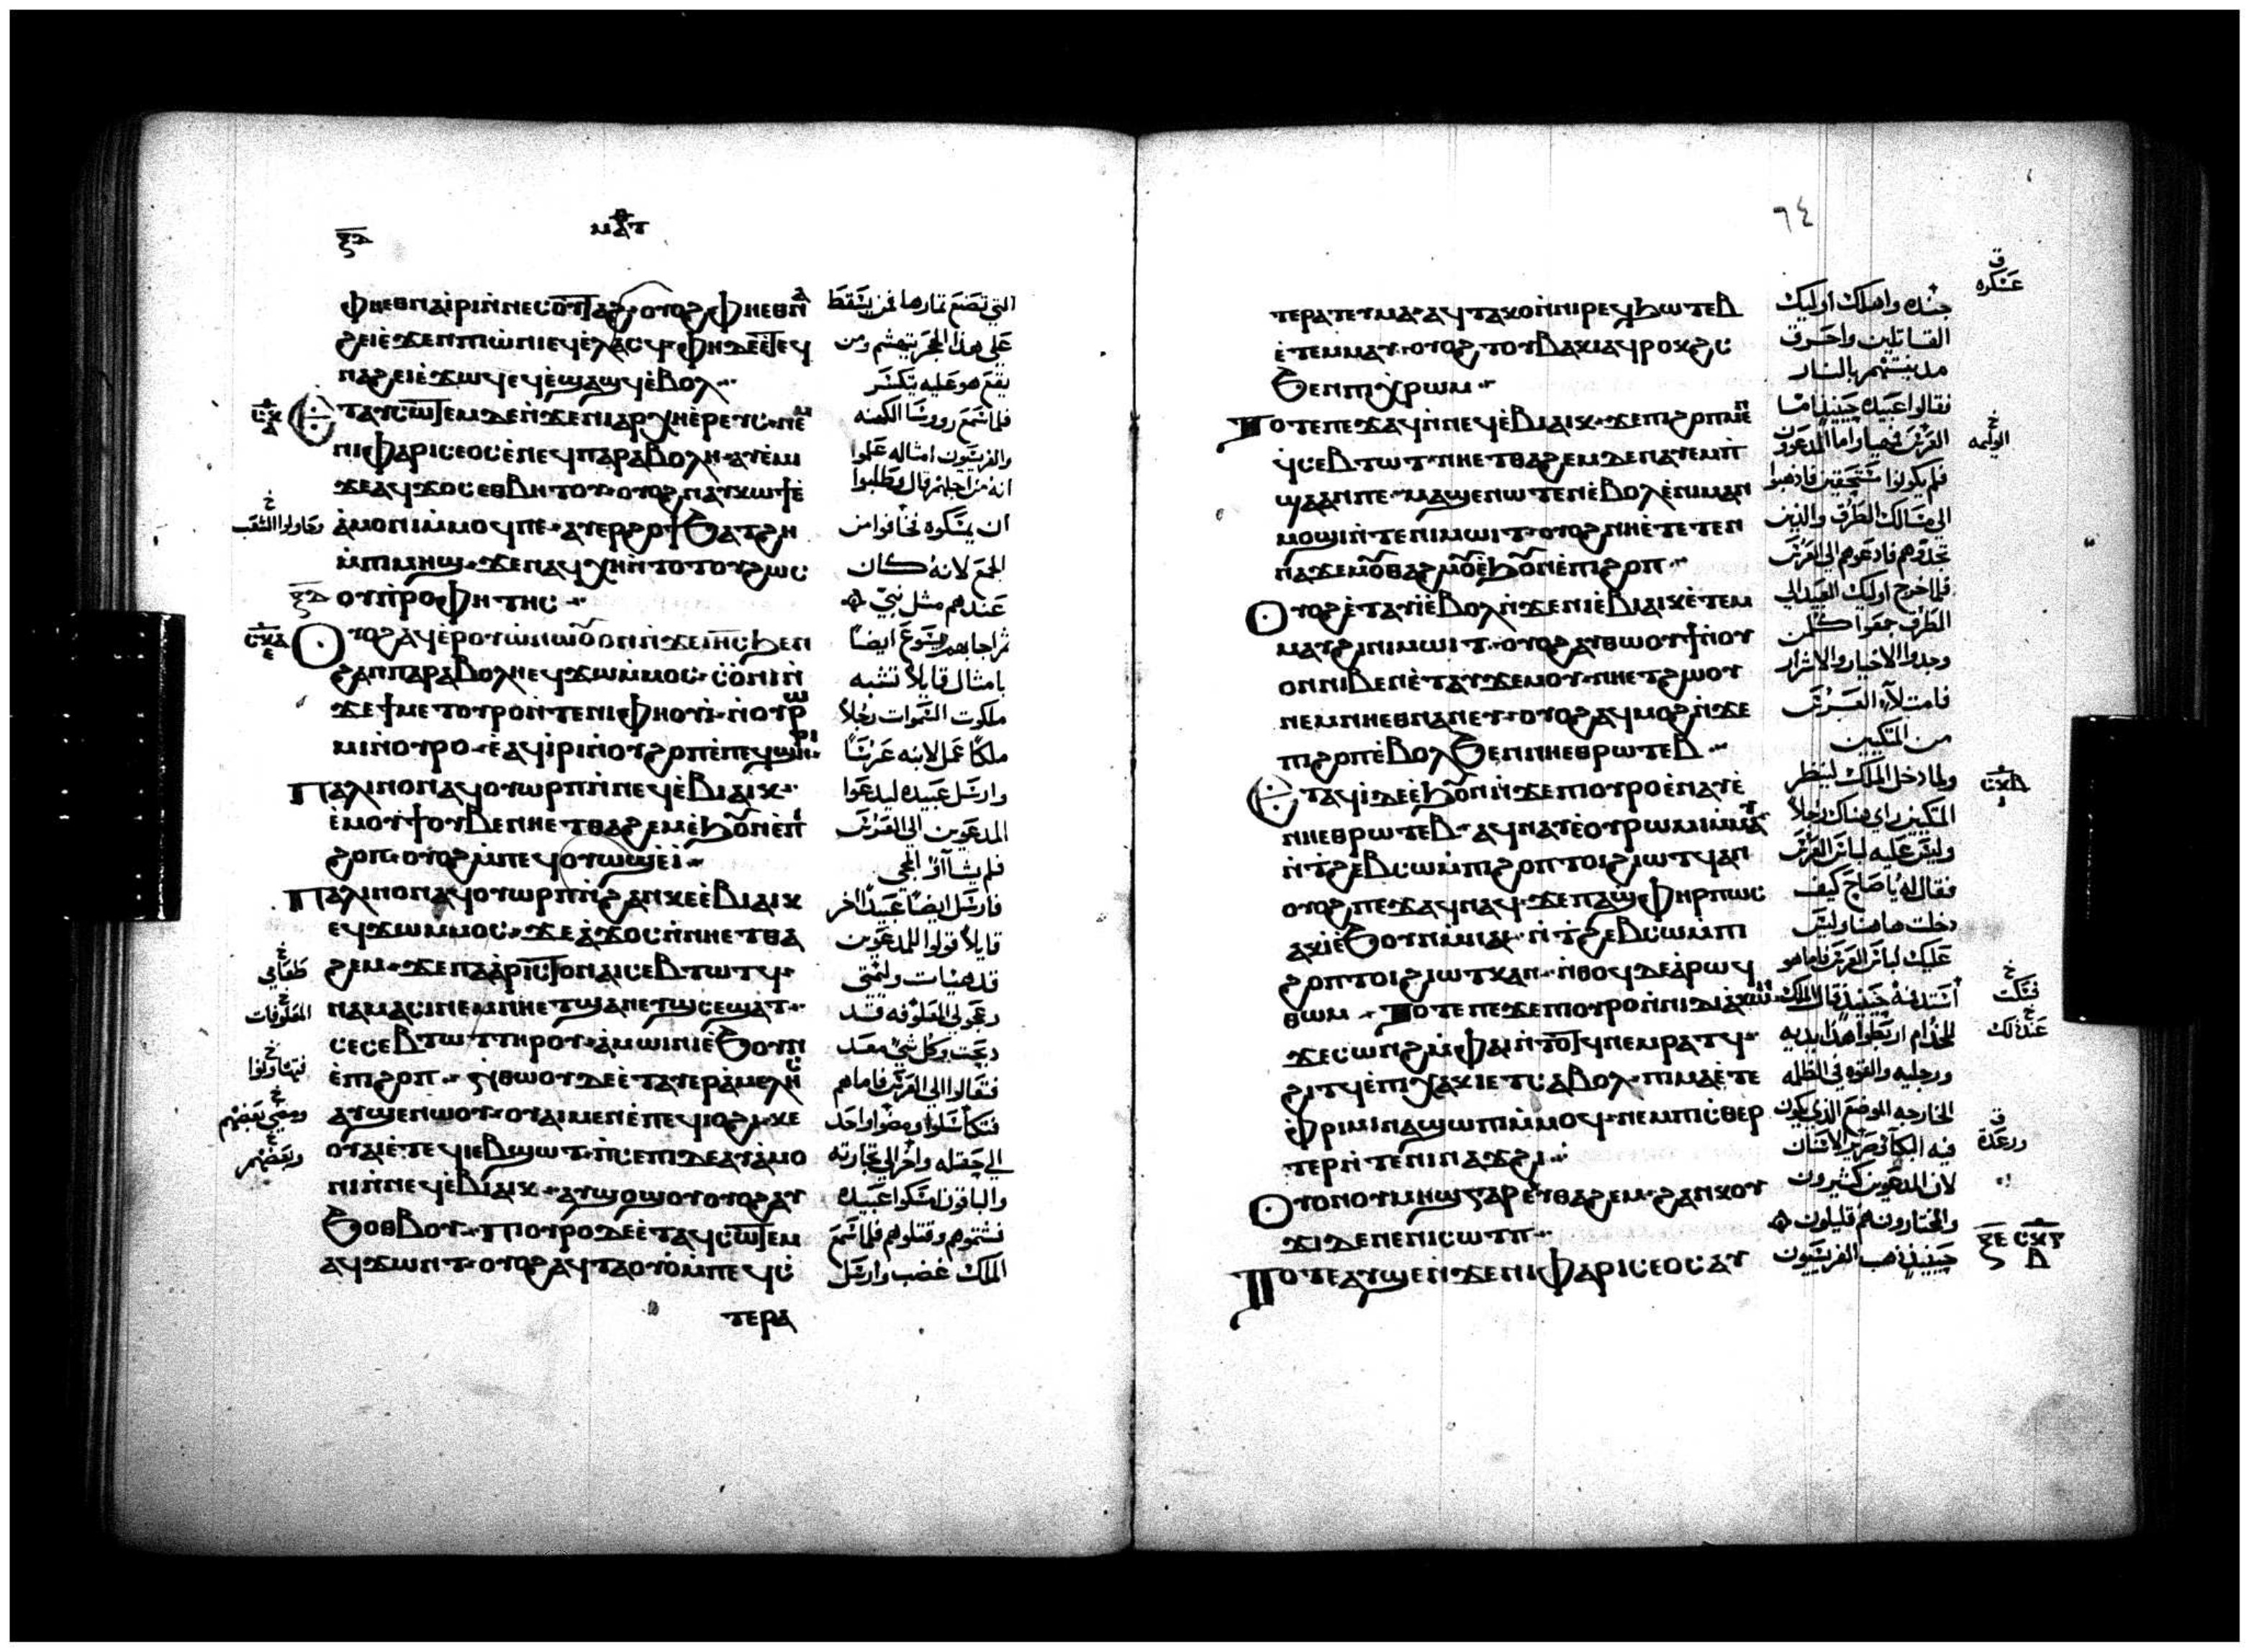 ⲝⲇ
ⲙⲁⲧ
ⲫⲏⲉⲑⲛⲁⲓⲣⲓⲛ̀ⲛⲉⲥⲟⲩⲧⲁϩ ⲟⲩⲟϩ ⲫⲏⲉⲑⲛⲁ
ϩⲉⲓⲉ̀ϫⲉⲛⲡⲓⲱ̀ⲛⲓⲉϥⲉ̀ⲗⲁⲥϥ ⲫⲏⲇⲉⲉ̀ⲧⲉϥ
ⲛⲁϩⲉⲓⲉ̀ϫⲱϥⲉϥⲉ̀ϣⲁϣϥⲉ̀ⲃⲟⲗ
ⲉⲧⲁⲩⲥⲱⲧⲉⲙⲇⲉⲛ̀ϫⲉⲛⲓⲁⲣⲭⲏⲉ̀ⲣⲉⲩⲥ ⲛⲉⲙ
ⲛⲓⲫⲁⲣⲓⲥⲉⲟⲥⲉ̀ⲛⲉϥⲡⲁⲣⲁⲃⲟⲗⲏ ⲁⲩⲉ̀ⲙⲓ
ϫⲉⲁϥϫⲟⲥⲉⲑⲃⲏⲧⲟⲩ ⲟⲩⲟϩ ⲛⲁⲩⲕⲱϯⲉ̀
ⲁ̀ⲙⲟⲛⲓⲙ̀ⲙⲟϥⲡⲉ ⲁⲩⲉⲣϩⲟϯϧⲁⲧϩⲏ
ⲙ̀ⲡⲓⲙⲏϣ ϫⲉⲛⲁϥⲭⲏⲛ̀ⲧⲟⲧⲟⲩϩⲱⲥ
ⲟⲩⲡⲣⲟⲫⲏⲧⲏⲥ
ⲟⲩⲟϩ ⲁϥⲉ̀ⲣⲟⲩⲱ̀ⲛⲱⲟⲩⲟⲛⲛ̀ϫⲉⲓⲏⲥϧⲉⲛ
ϩⲁⲛⲡⲁⲣⲁⲃⲟⲗⲏⲉϥϫⲱⲙ̀ⲙⲟⲥ ⲥⲟ̀ⲛⲓⲛ̀
ϫⲉϯⲙⲉⲧⲟⲩⲣⲟⲛ̀ⲧⲉⲛⲓⲫⲏⲟⲩⲓ ⲛ̀ⲟⲩⲣⲱ
ⲙⲓⲛ̀ⲟⲩⲣⲟ ⲉ̀ⲁϥⲓ̀ⲣⲓⲛ̀ⲟⲩϩⲟⲡⲉ̀ⲡⲉϥϣⲏⲣⲓ
ⲡⲁⲗⲓⲛⲟⲛⲁϥⲟⲩⲱⲣⲡⲛ̀ⲛⲉϥⲉ̀ⲃⲓⲁⲓⲕ
ⲉ̀ⲙⲟⲩϯⲟⲩⲃⲉⲛⲏⲉⲧⲑⲁϩⲉⲙⲉ̀ϧⲟⲩⲛⲉ̀ⲡⲓ
ϩⲟⲡ ⲟⲩⲟϩ ⲙ̀ⲡⲉϥⲟⲩⲱϣⲉ̀ⲓ
ⲡⲁⲗⲓⲛⲟⲛⲁϥⲟⲩⲱⲣⲡⲛ̀ϩⲁⲛⲕⲉⲉ̀ⲃⲓⲁⲓⲕ
ⲉϥϫⲱⲙ̀ⲙⲟⲥ ϫⲉⲁ̀ϫⲟⲥⲛ̀ⲛⲏⲉⲧⲑⲁ
ϩⲉⲙ ϫⲉⲡⲁⲁ̀ⲣⲓⲥⲧⲟⲛⲁⲓⲥⲉⲃⲧⲱⲧϥ
ⲛⲁⲙⲁⲥⲓⲛⲉⲙⲛⲏⲉⲧϣⲁⲛⲉⲩϣⲥⲉϣⲁⲧ
ⲥⲉⲥⲉⲃⲧⲱⲧⲧⲏⲣⲟⲩ ⲁ̀ⲙⲱⲓⲛⲓⲉ̀ϧⲟⲩⲛ
ⲉ̀ⲡⲓϩⲟⲡ ⲛ̀ⲑⲱⲟⲩⲇⲉⲉ̀ⲧⲁⲩⲉⲣⲁ̀ⲙⲉⲗⲏⲥ
ⲁⲩϣⲉⲛⲱⲟⲩ ⲟⲩⲁⲓⲙⲉⲛⲉ̀ⲡⲉϥⲓⲟϩⲓ ⲕⲉ
ⲟⲩⲁⲓⲉ̀ⲧⲉϥⲓⲉⲃϣⲱⲧ ⲡⲥⲉⲡⲓⲇⲉⲁⲩⲁ̀ⲙⲟ
ⲛⲓⲛ̀ⲛⲉϥⲉ̀ⲃⲓⲁⲓⲕ ⲁⲩϣⲟϣⲟⲩⲟⲩⲟϩ ⲁⲩ
ϧⲟⲑⲃⲟⲩ ⲡⲓⲟⲩⲣⲟⲇⲉⲉ̀ⲧⲁϥⲥⲱⲧⲉⲙ
ⲁϥϫⲱⲛⲧ ⲟⲩⲟϩ ⲁϥⲧⲁⲟⲩⲟ̀ⲙ̀ⲡⲉϥⲥ
ⲧⲉⲣⲁ
التي تصنع ثمارها فمن يسقط
على هذا الحجر يتهشم ومن
يقع هو عليه يتكسر
فلما سمع روسا الكهنه
والفريسيون امثاله علموا
انه من اجلهم قال وطلبوا
ان يمسكوه فخافوا من
الجمع لانه كان
عندهم مثل نبي
ثم اجابهم يسوع ايضا
بامثال قايلا تشبه
ملكوت السموات رجلا
ملكا عمل لابنه عرسا
وارسل عبيده ليدعوا
المدعوين الى العرس
فلم يشاآوا المجي
فارسل ايضا عبيدا اخر
قايلا قولوا للمدعوين
قد هيات وليمتي
وكل شي معد
فتعالوا الى العرس فاما هم
فتكاسلوا ومضوا واحد
الى حقله واخر الى تجارته
والباقون امسكوا عبيده
فشتموهم وقتلوهم فلما سمع
الملك غضب وارسل
طعامي
المعلوفات
فتهاونوا
ومضى بعضهم
وبعضهم
٦٤
ⲧⲉⲣⲁⲧⲉⲩⲙⲁ ⲁϥⲧⲁⲕⲟⲛ̀ⲛⲓⲣⲉϥϧⲱⲧⲉⲃ
ⲉ̀ⲧⲉⲙⲙⲁⲩ ⲟⲩⲟϩ ⲧⲟⲩⲃⲁⲕⲓⲁϥⲣⲟⲕϩⲥ
ϧⲉⲛⲡⲓⲭⲣⲱⲙ
ⲧⲟⲧⲉⲡⲉϫⲁϥⲛ̀ⲛⲉϥⲉ̀ⲃⲓⲁⲓⲕ ϫⲉⲡⲓϩⲟⲡⲙⲉⲛ
ϥⲥⲉⲃⲧⲱⲧ ⲛⲏⲉⲧⲑⲁϩⲉⲙⲇⲉⲛⲁⲩⲉⲙⲡ
ϣⲁⲁⲛⲡⲉ ⲙⲁϣⲉⲛⲱⲧⲉⲛⲉ̀ⲃⲟⲗⲉ̀ⲛⲓⲙⲁⲛ
ⲙⲟϣⲓⲛ̀ⲧⲉⲛⲓⲙⲱⲓⲧ ⲟⲩⲟϩ ⲛⲏⲉ̀ⲧⲉⲧⲉⲛ
ⲛⲁϫⲉⲙⲟⲩⲑⲁϩⲙⲟⲩⲉ̀ϧⲟⲩⲛⲉ̀ⲡⲓϩⲟⲡ
ⲟⲩⲟϩ ⲉ̀ⲧⲁⲩⲓ̀ⲉ̀ⲃⲟⲗⲛ̀ϫⲉⲛⲓⲉ̀ⲃⲓⲁⲓⲕⲉ̀ⲧⲉⲙ
ⲙⲁⲩϩⲓⲛⲓⲙⲱⲓⲧ ⲟⲩⲟϩ ⲁⲩⲑⲱⲟⲩϯⲛ̀ⲟⲩ
ⲟⲛⲛⲓⲃⲉⲛⲉ̀ⲧⲁⲩϫⲉⲙⲟⲩ ⲛⲏⲉⲧϩⲱⲟⲩ
ⲛⲉⲙⲛⲏⲉⲑⲛⲁⲛⲉⲩ ⲟⲩⲟϩ ⲁϥⲙⲟϩⲛ̀ϫⲉ
ⲡⲓϩⲟⲡⲉ̀ⲃⲟⲗϧⲉⲛⲛⲏⲉⲑⲣⲱⲧⲉⲃ
ⲉⲧⲁϥⲓ̀ⲇⲉⲉ̀ϧⲟⲩⲛⲛ̀ϫⲉⲡⲓⲟⲩⲣⲟⲉ̀ⲛⲁⲩⲉ̀
ⲛⲏⲉⲑⲣⲱⲧⲉⲃ ⲁϥⲛⲁⲩⲉ̀ⲟⲩⲣⲱⲙⲓⲙ̀ⲙⲁⲩ
ⲛ̀ⲧϩⲉⲃⲥⲱⲙ̀ⲡⲓϩⲟⲡⲧⲟⲓϩⲓⲱⲧϥⲁⲛ
ⲟⲩⲟϩ ⲡⲉϫⲁϥⲛⲁϥ ϫⲉⲡⲁϣⲫⲏⲣⲡⲱⲥ
ⲁⲕⲓ̀ⲉ̀ϧⲟⲩⲛⲙ̀ⲛⲁⲓ ⲛ̀ⲧϩⲉⲃⲥⲱⲙ̀ⲡⲓ
ϩⲟⲡⲧⲟⲓϩⲓⲱⲧⲕⲁⲛ ⲛ̀ⲑⲟϥⲇⲉⲁ̀ⲣⲱϥ
ⲑⲱⲙ ⲧⲟⲧⲉⲡⲉϫⲉⲡⲓⲟⲩⲣⲟⲛ̀ⲛⲓⲇⲓⲁ̀ⲕⲱⲛ
ϫⲉⲥⲱⲛϩⲙ̀ⲫⲁⲓⲛ̀ⲧⲟⲧϥⲛⲉⲙⲣⲁⲧϥ
ϩⲓⲧϥⲉ̀ⲡⲓⲭⲁⲕⲓⲉⲧⲥⲁⲃⲟⲗ ⲡⲓⲙⲁⲉ̀ⲧⲉ
ⲫⲣⲓⲙⲓⲛⲁϣⲱⲡⲓⲙ̀ⲙⲟϥ ⲛⲉⲙⲡⲓⲥⲑⲉⲣ
ⲧⲉⲣⲛ̀ⲧⲉⲛⲓⲛⲁϫϩⲓ
ⲟⲩⲟⲛⲟⲩⲙⲏϣⲅⲁⲣⲉⲩⲑⲁϩⲉⲙ ϩⲁⲛⲕⲟⲩ
ϫⲓⲇⲉⲛⲉⲛⲓⲥⲱⲧⲡ
ⲧⲟⲧⲉⲁⲩϣⲉⲛ̀ϫⲉⲛⲓⲫⲁⲣⲓⲥⲉⲟⲥⲁⲩ
جنده واهلك اوليك
القاتلين واحرق
مدينتهم بالنار
فقال لعبيده حينيذ اما
العرس فمهيا واما المدعوون
فلم يكونوا مستحقين فاذهبوا
الى مسالك الطرق والذين
تجدوهم فادعوهم الى العرس
فلما خرج اوليك العبيد الى
الطرق جمعوا كل من
وجدوا الاخيار والاشرار
فامتلآء العرس
من المتكيين
ولما دخل الملك لينظر
المتكيين راى هناك رجلا
وليس عليه لباس العرس
فقال له يا صاح كيف
دخلت هاهنا وليس
عليك لباس العرس فاما هو
استد فمه حينيذ قال الملك
للخدام اربطوا هذا يديه
ورجليه والقوه في الظلمه
الخارجه الموضع الذي يكون
فيه البكا وصرير الاسنان
لان المدعوين كثيرون
والمختارون هم قليلون
حينيذ ذهب الفريسيون
عسكره
الوليمه
فسكت
عند ذلك